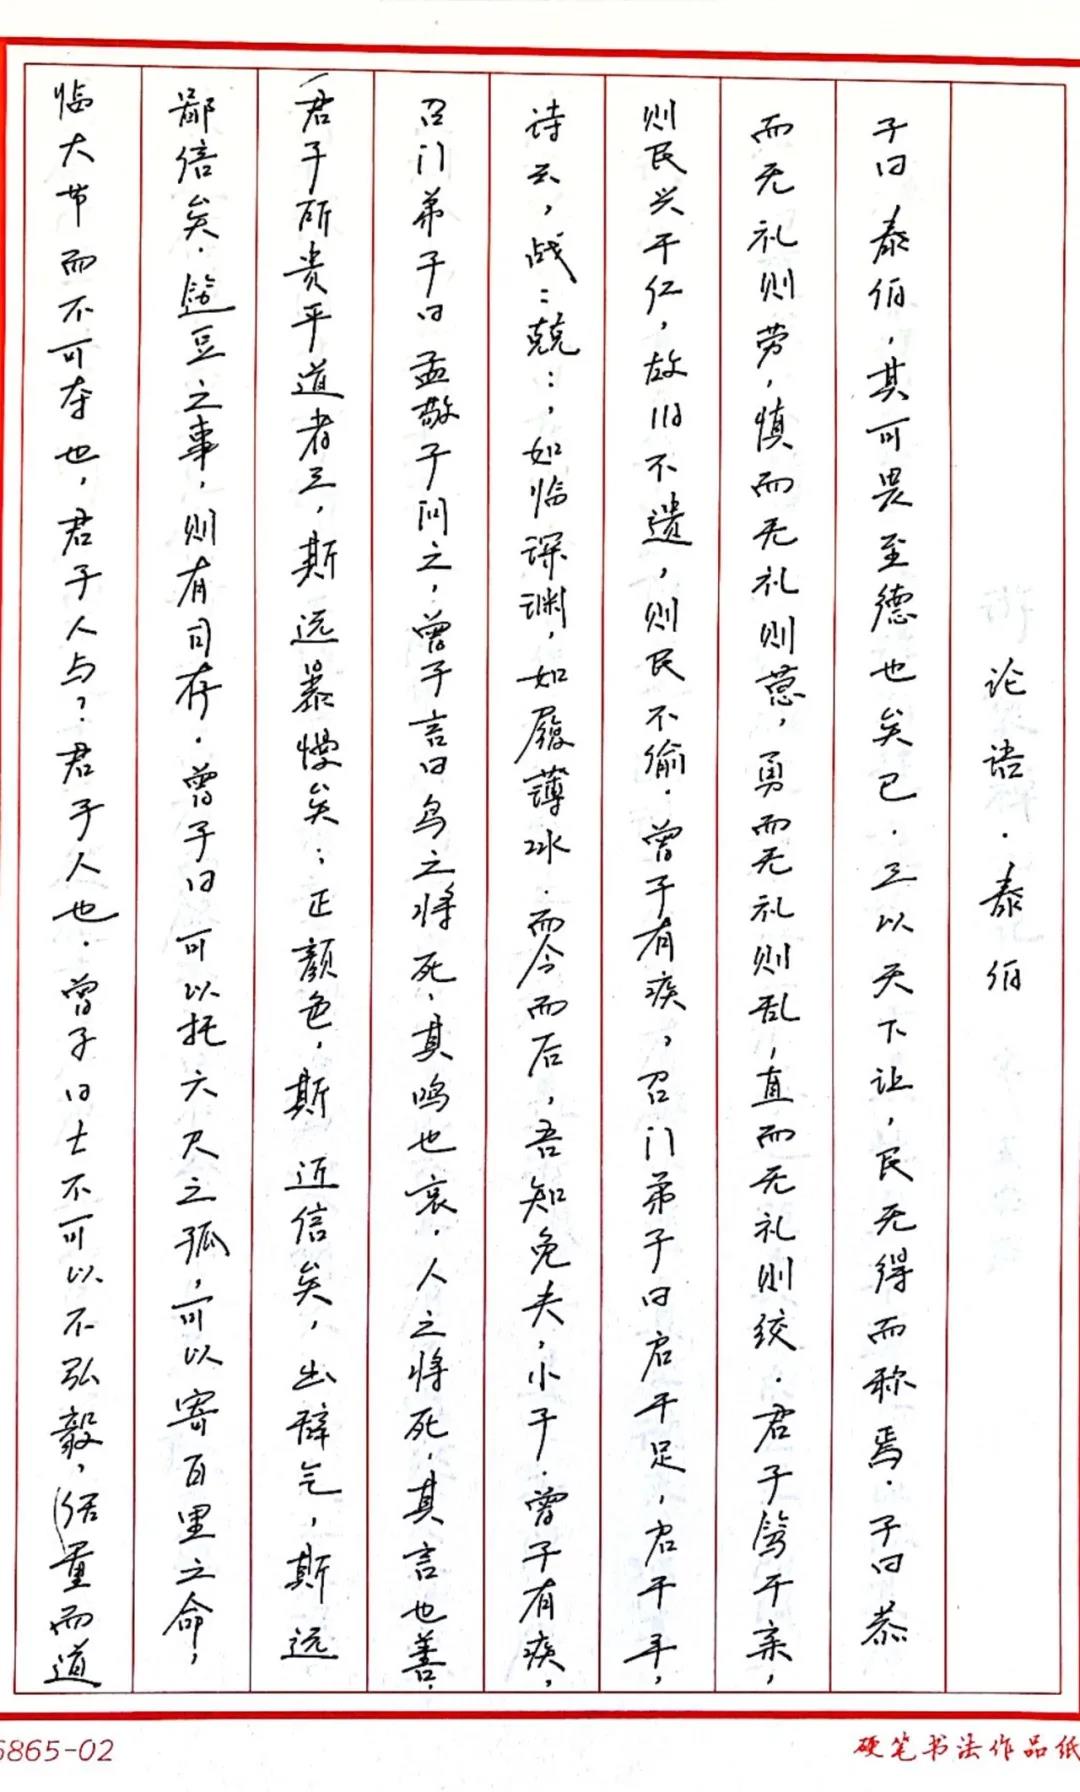 论语·泰伯
子曰泰伯，其可畏至德也矣已．三以天下让，民无得而称焉．子曰恭
而无礼则劳，慎而无礼则葸，勇而无礼则乱，直而无礼则绞．君子笃于亲，
则民兴于仁，故旧不遗，则民不偷．曾子有疾，召门弟子曰启予足，启予手，
诗云，战：兢：，如临深渊，如履薄冰．而今而后，吾知免夫，小子．曾子有疾，
召门弟子曰孟敬子问之，曾子言曰鸟之将死，其鸣也哀，人之将死，其言也善．
君子所贵乎道者三，斯远暴慢矣；正颜色，斯近信矣，出辞气，斯远
鄙倍矣．笾豆之事，则有司存．曾子曰可以托六尺之孤，可以寄百里之命，
临大节而不可夺也，君子人与？君子人也．曾子曰士不可以不弘毅，重而道
6865-02
硬笔书法作品纸